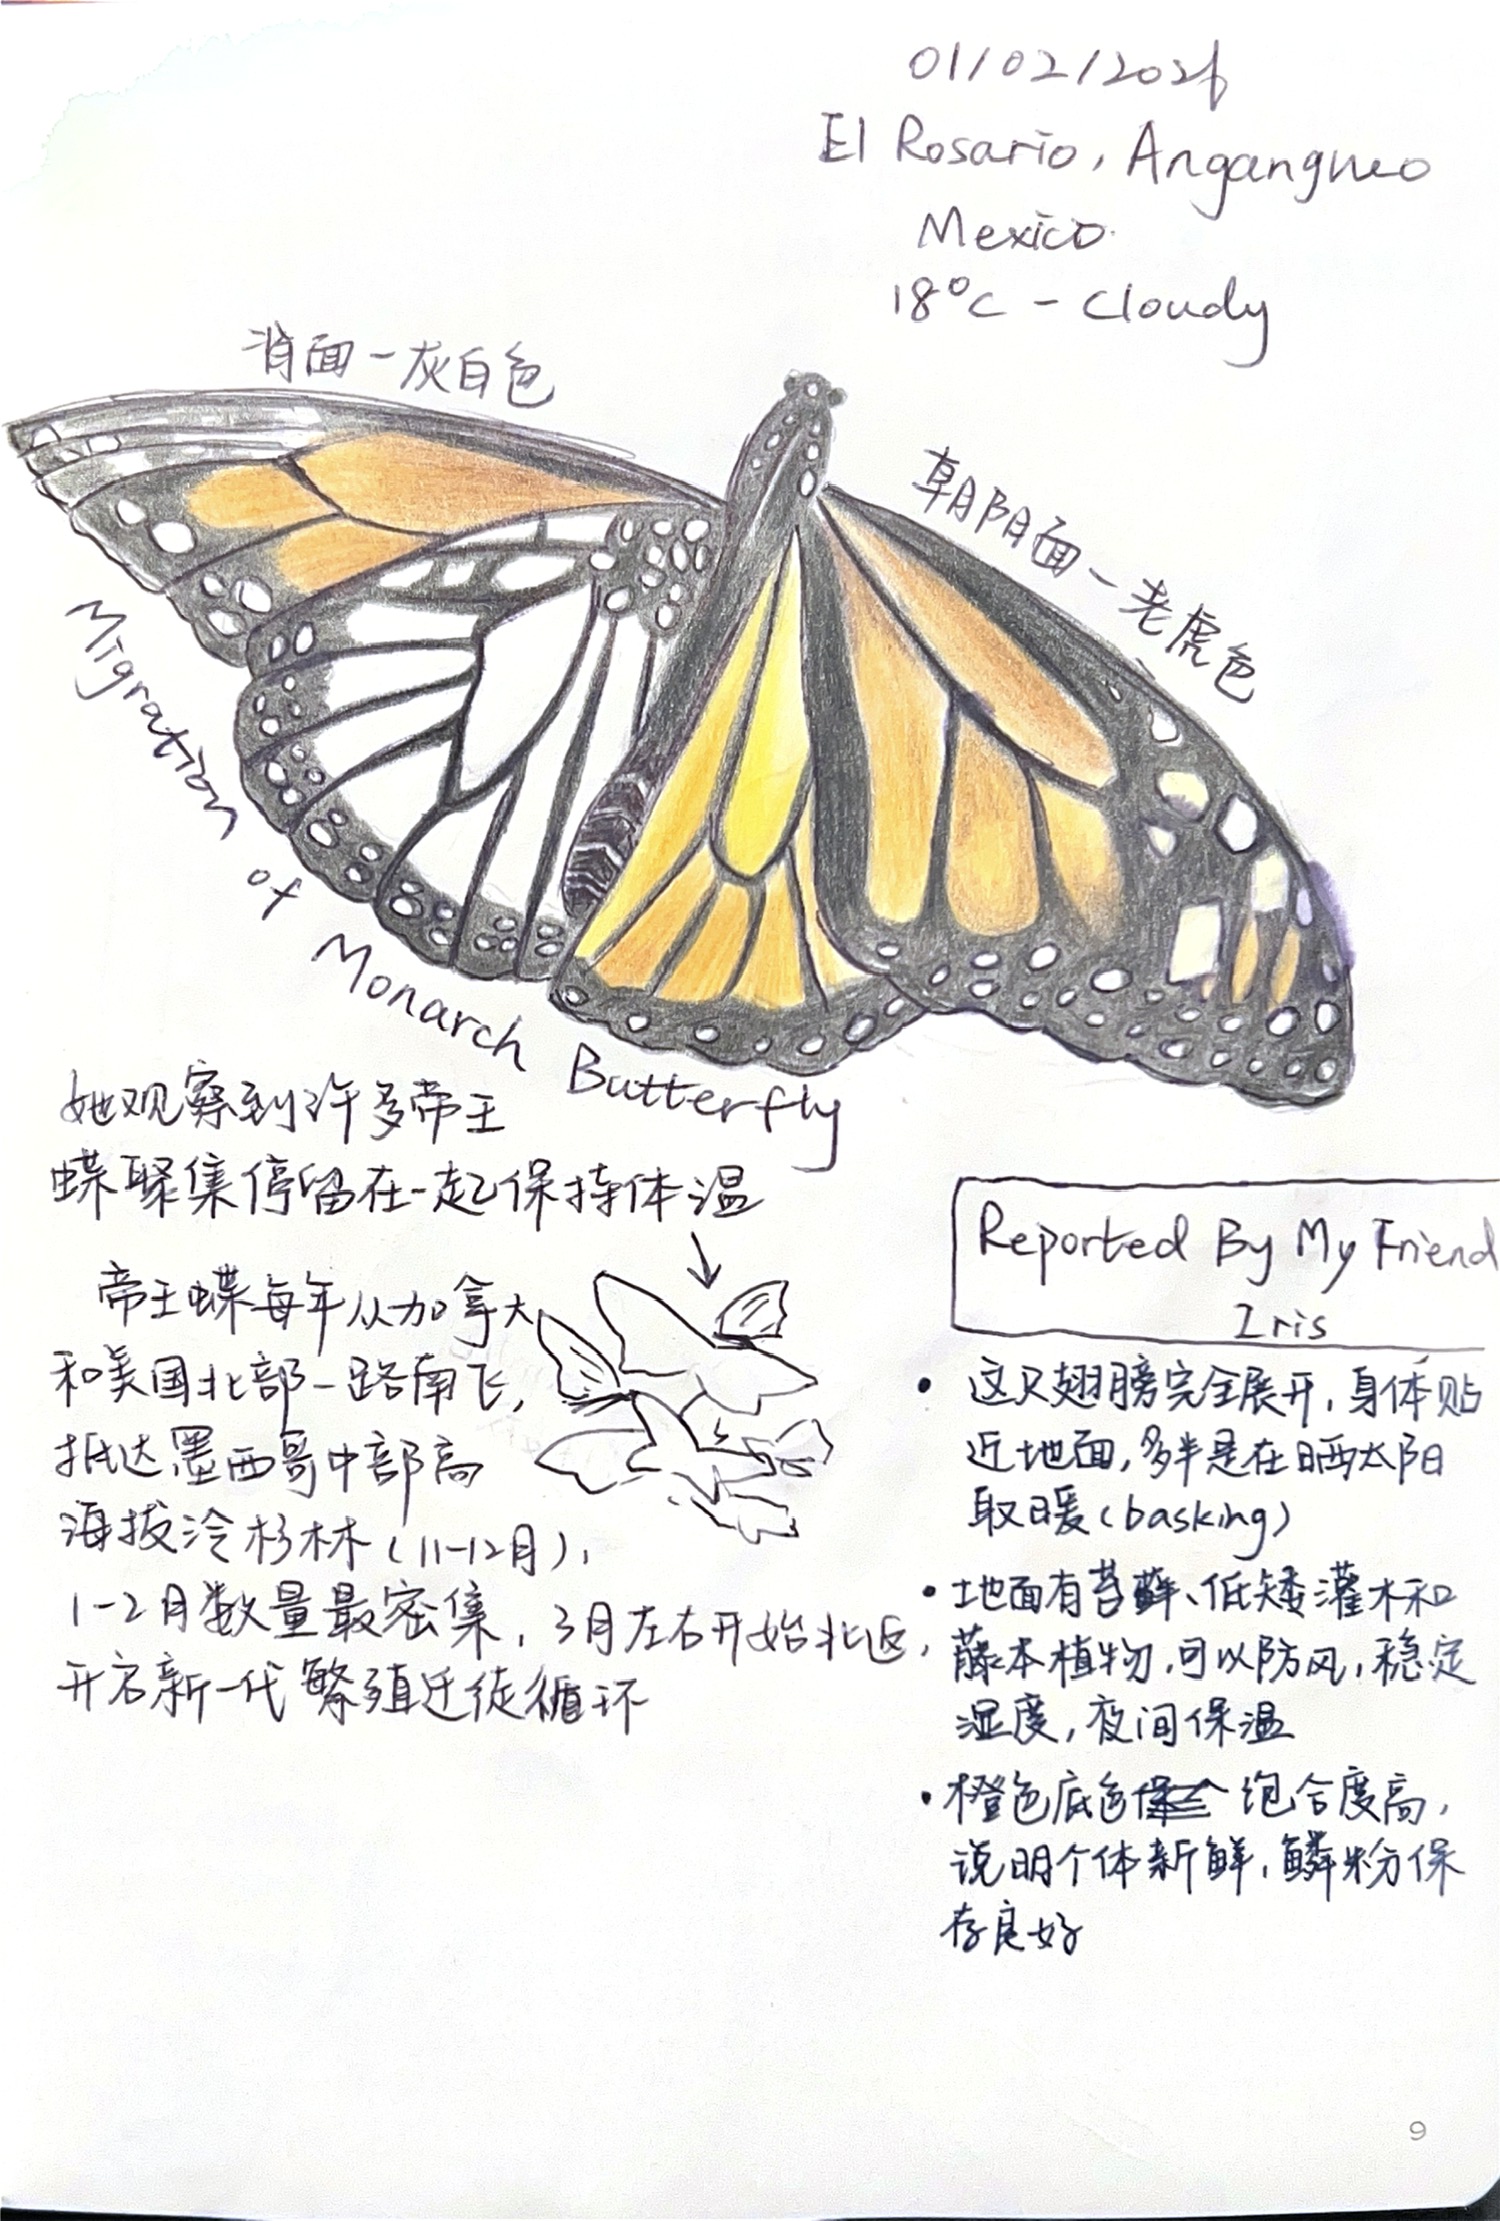 01/02/2026
El Rosario, Angangueo
Mexico
18°C - Cloudy
背面-灰白色
朝阳面-老虎色
Migration of Monarch Butterfly
她观察到许多帝王
蝶聚集停留在一起保持体温
帝王蝶每年从加拿大
和美国北部一路南飞,
抵达墨西哥中部高
海拔冷杉林(11-12月),
1-2月数量最密集,3月左右开始北返,
开启新一代繁殖迁徙循环
Reported By My Friend
Iris
• 这只翅膀完全展开,身体贴
近地面,多半是在晒太阳
取暖(basking)
• 地面有苔藓、低矮灌木和
藤本植物,可以防风,稳定
湿度,夜间保温
• 橙色底色饱合度高,
说明个体新鲜,鳞粉保
存良好
9